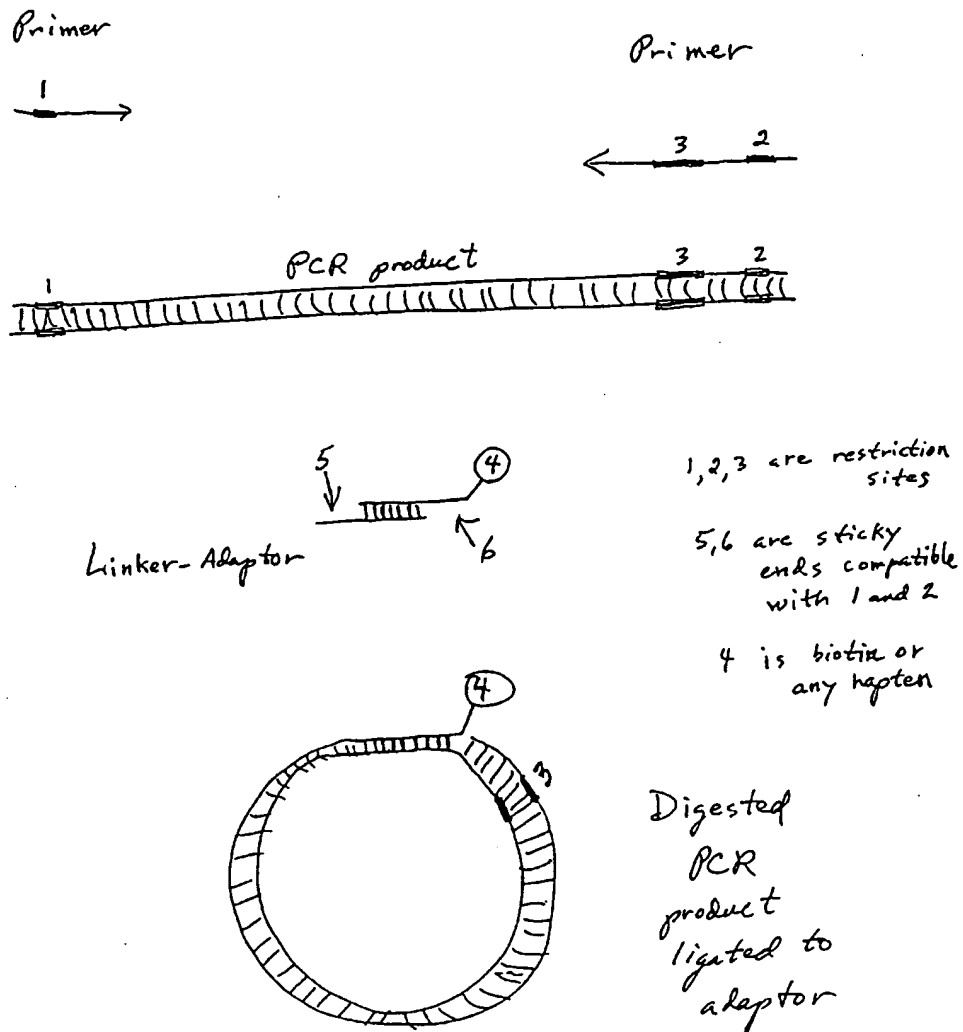 Primer
Primer
1
3 2
PCR product
1
3 2
5
4
6
Linker-Adaptor
1,2,3 are restriction
sites
5,6 are sticky
ends compatible
with 1 and 2
4 is biotin or
any hapten
4
3
Digested
PCR
product
ligated to
adaptor